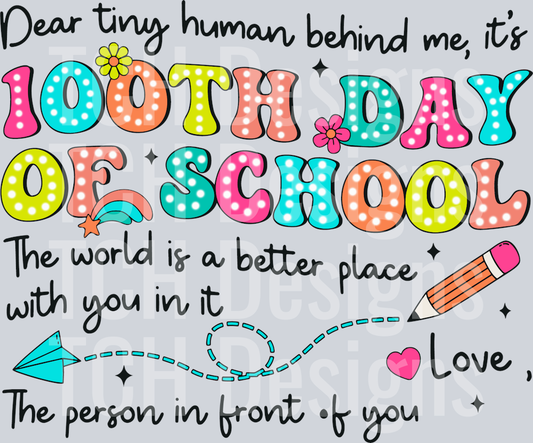 Dear tiny human behind me, it's
100TH DAY
OF SCHOOL
The world is a better place
with you in it
Love ,
The person in front of you
TCH Designs
TCH Designs
TCH Designs